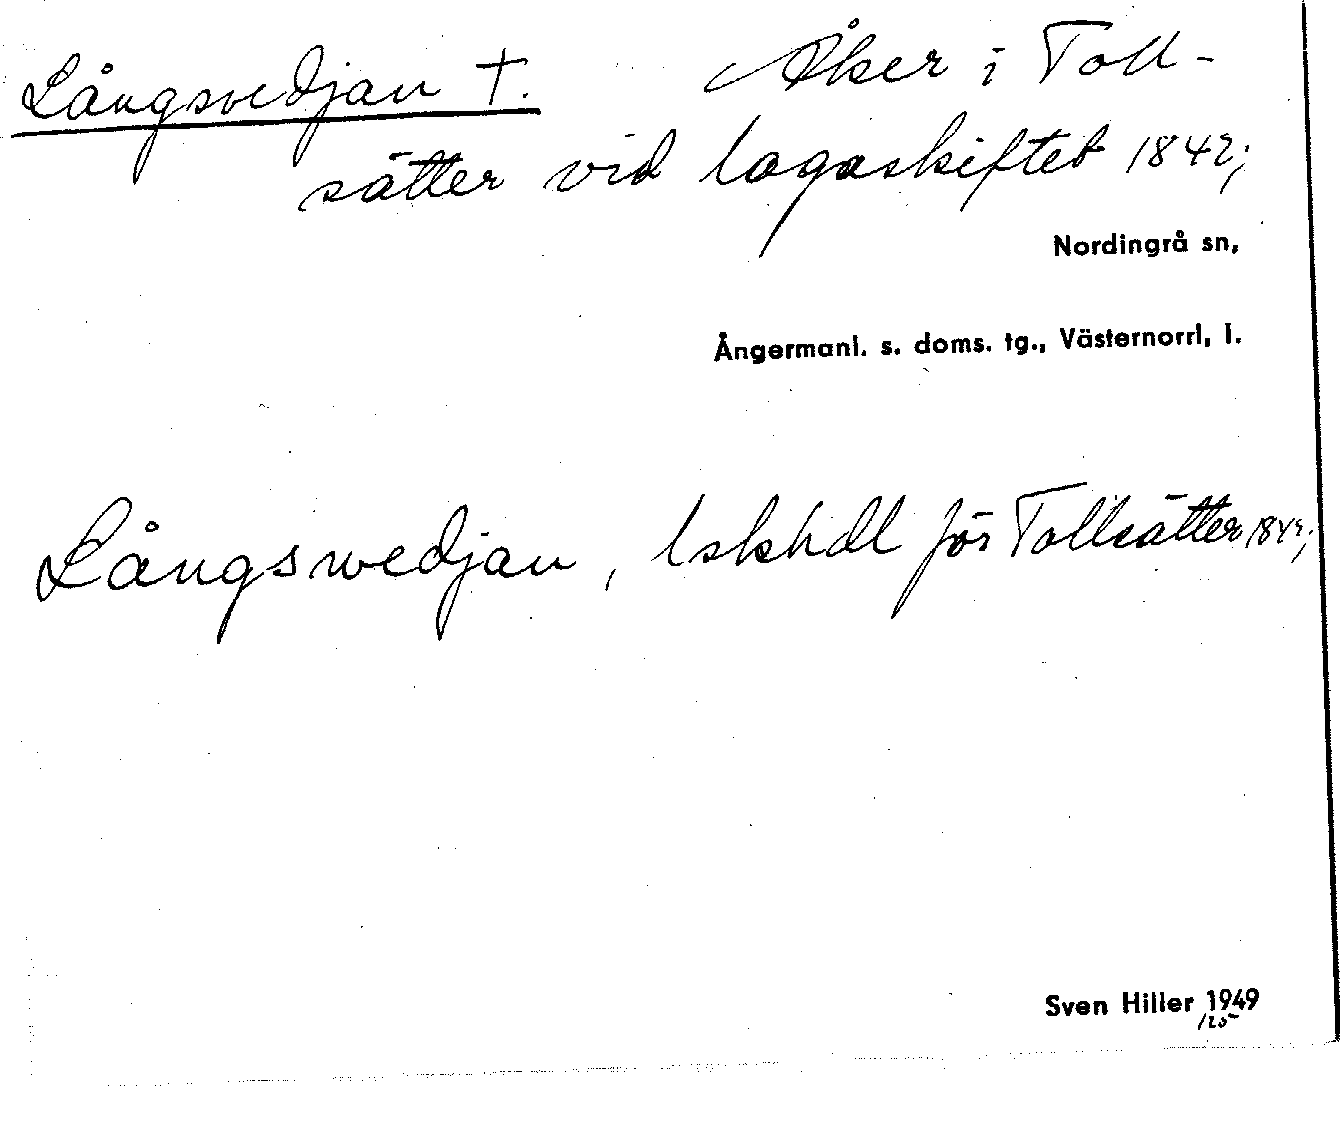 Långsvedjan †. Åker i Toll-
sätter vid lagaskiftet 1842;
Nordingrå sn,
Ångermanl. s. doms. tg., Västernorrl, l.
Långswedjan, lskhdl för Tollsätter 1842;
Sven Hiller 1949